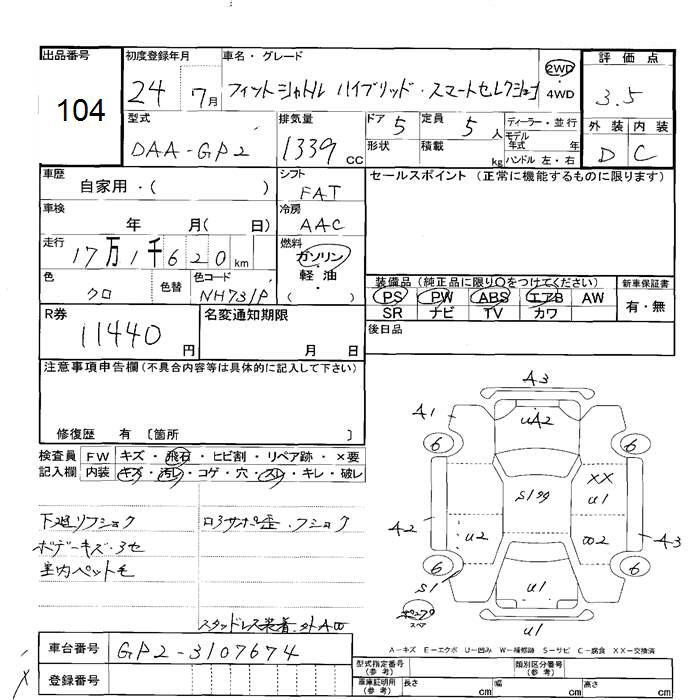 出品番号
104
初度登録年月
24 7月
車名・グレード
フィットシャトル ハイブリッド・スマートセレクション
2WD
・
4WD
評価点
3.5
型式
DAA-GP2
排気量
1339 cc
ドア 5
形状
定員 5 人
積載 kg
ディーラー・並行
モデル
年式 年
ハンドル 左・右
外装 内装
D C
車歴
自家用・( )
シフト
FAT
セールスポイント (正常に機能するものに限ります)
車検
年 月( 日)
冷房
AAC
走行
17万1千620km
燃料
ガソリン
・
軽油
・
( )
色
クロ
色替
色コード
NH731P
装備品 (純正品に限り○をつけてください)
PS PW ABS エアB AW
SR ナビ TV カワ
新車保証書
有・無
R券
11440 円
名変通知期限
月 日
後日品
注意事項申告欄(不具合内容等は具体的に記入して下さい)
修復歴 有 〔箇所 〕
検査員
記入欄
FW キズ・飛石・ヒビ割・リペア跡・×要
内装 キズ・汚レ・コゲ・穴・スレ・キレ・破レ
下廻リフショク
ボデーキズ・ヨセ
室内ペット毛
ロアサポ歪・フショク
スタッドレス装着
A3
A1
UA2
6
6
XX
U1
S1
A2
U2
A3
6
6
S1
U1
スペア
U1
A－キズ E－エクボ U－凹み W－補修跡 S－サビ C－腐食 XX－交換済
車台番号 GP2-3107674
登録番号
型式指定番号
(参考)
類別区分番号
(参考)
車庫証明用
(参考)
長さ cm 幅 cm 高さ cm